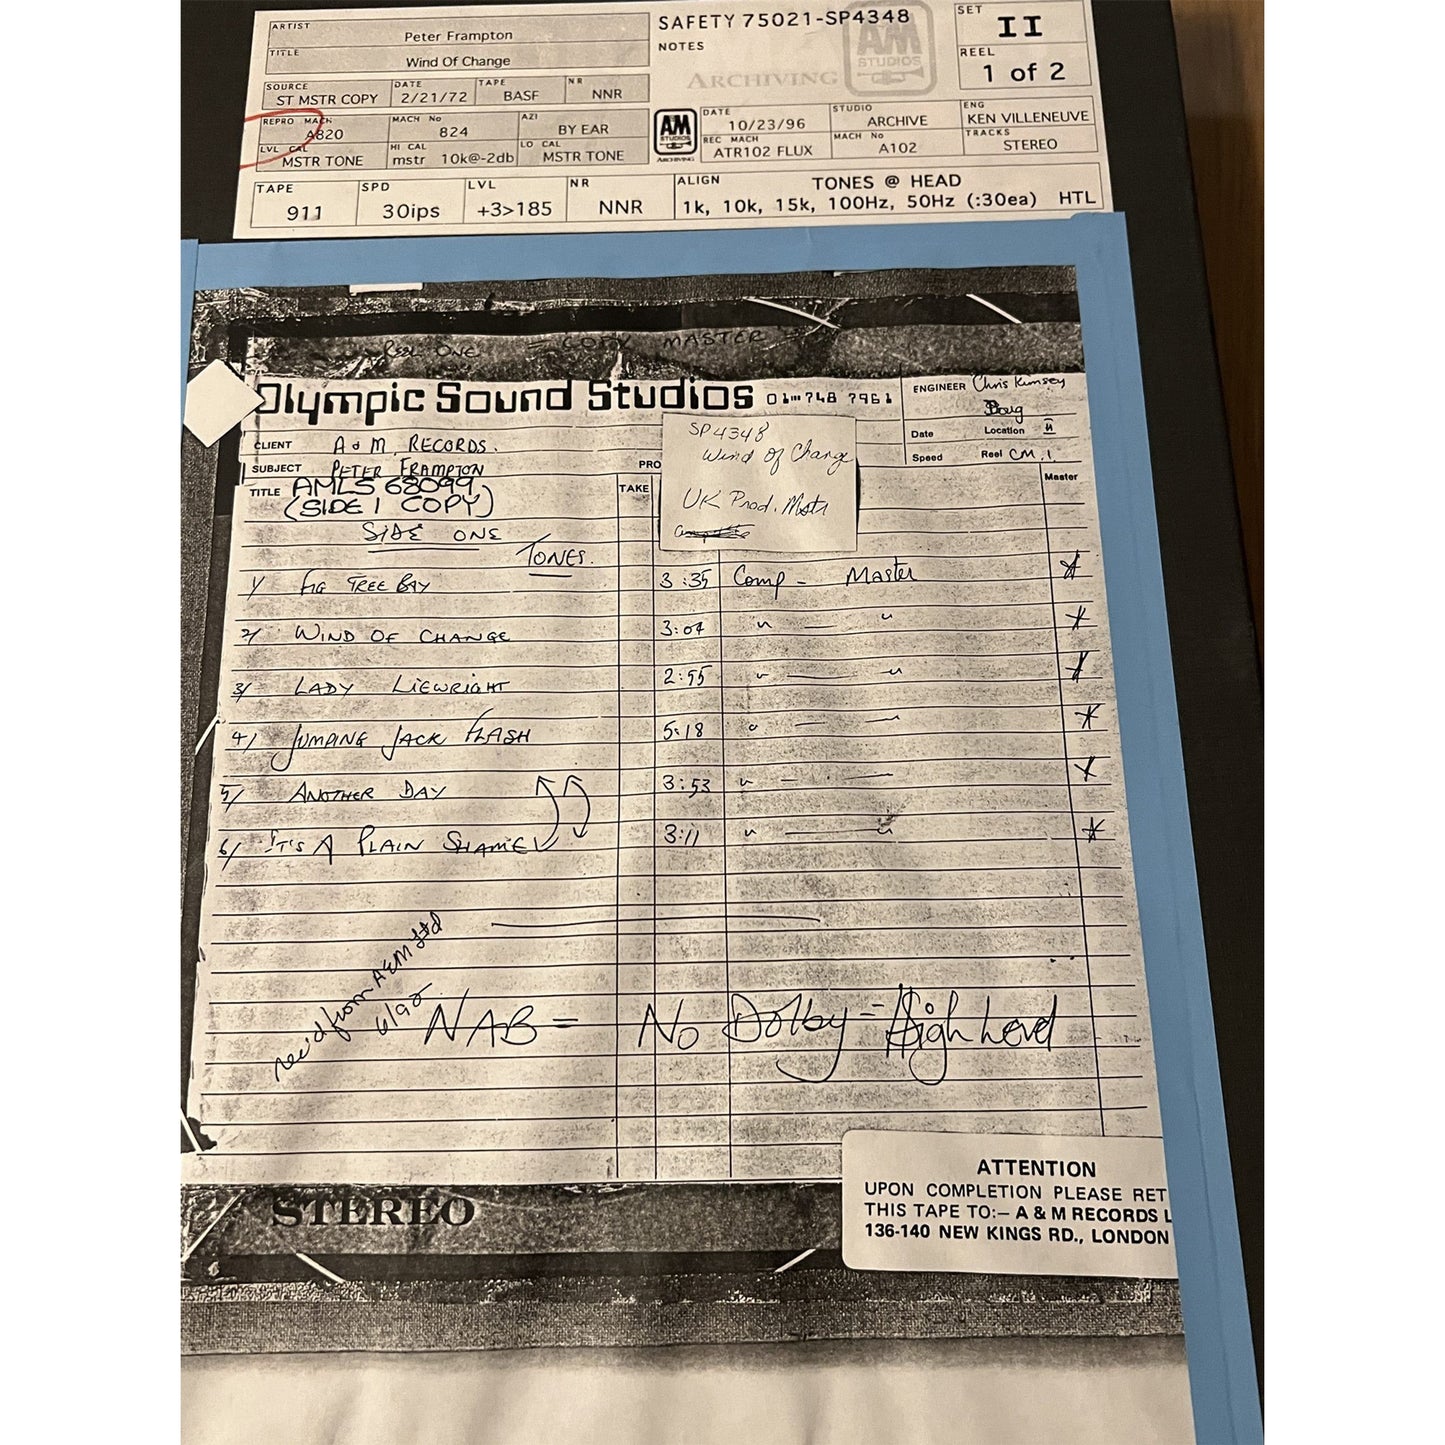 ARTIST Peter Frampton
TITLE Wind Of Change
SOURCE ST MSTR COPY DATE 2/21/72 TAPE BASF NR NNR
REPRO MACH A820 MACH No 824 AZI BY EAR
LVL CAL MSTR TONE HI CAL mstr 10k@-2db LO CAL MSTR TONE
SAFETY 75021-SP4348
NOTES
AM STUDIOS
ARCHIVING
SET II
REEL 1 of 2
AM STUDIOS ARCHIVING
DATE 10/23/96 STUDIO ARCHIVE ENG KEN VILLENEUVE
REC MACH ATR102 FLUX MACH No A102 TRACKS STEREO
TAPE 911 SPD 30ips LVL +3>185 NR NNR ALIGN TONES @ HEAD
1k, 10k, 15k, 100Hz, 50Hz (:30ea) HTL
REEL ONE = COPY MASTER
Olympic Sound Studios 01-748 7961
ENGINEER Chris Kimsey
Doug
Date Location
Speed Reel CM.1.
CLIENT A & M RECORDS.
SUBJECT PETER FRAMPTON PRO
TITLE AMLS 68099 TAKE Master
(SIDE 1 COPY)
SP4348
Wind Of Change
UK Prod. Mstr
SIDE ONE
TONES.
1/ FIG TREE BAY 3:35 Comp - Master *
2/ WIND OF CHANGE 3:04 " — " *
3/ LADY LIEWRIGHT 2:55 " — " *
4/ JUMPING JACK FLASH 5:18 " — " *
5/ ANOTHER DAY 3:53 " — " *
6/ IT'S A PLAIN SHAME 3:11 " — " *
rec'd from A&M Ltd
NAB = No Dolby = High Level
STEREO
ATTENTION
UPON COMPLETION PLEASE RET
THIS TAPE TO:– A & M RECORDS L
136-140 NEW KINGS RD., LONDON